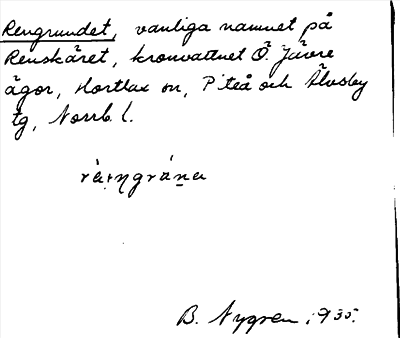 Rengrundet, vanliga namnet på
Renskäret, kronvattnet Ö. Jävre
ägor, Hortlax sn, Piteå och Älvsby
tg, Norrb. l.
B. Nygren, 1935.